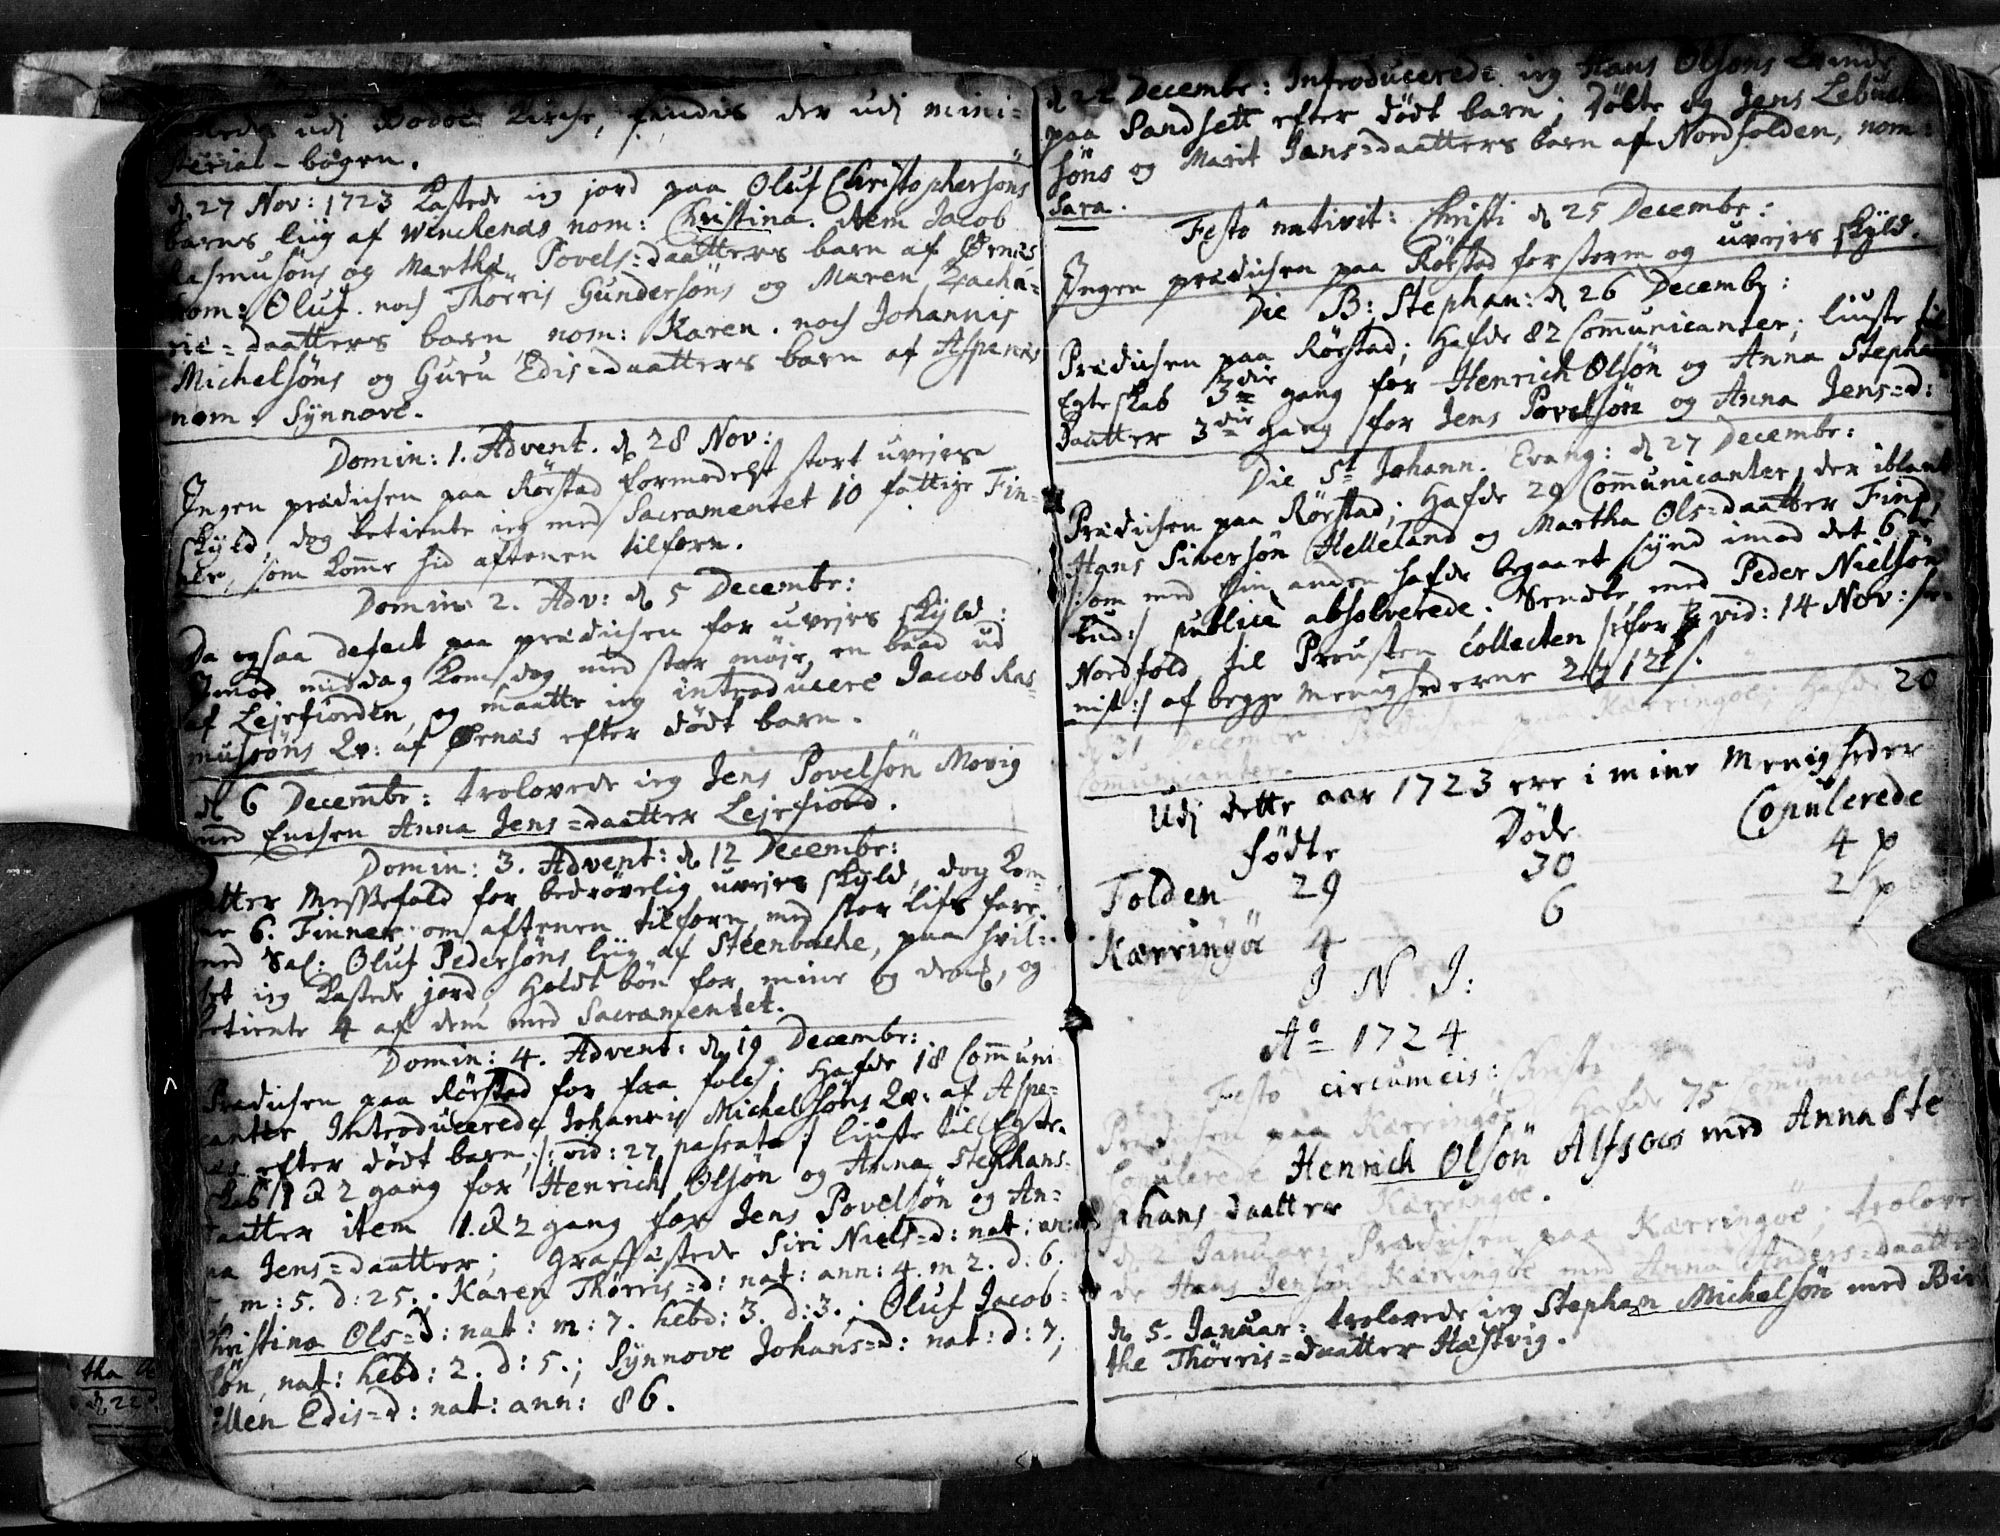 udj Bodöe Kirche, findis der udj mini=
sterial-bogen.
d. 27 Nov: 1723 kastede ieg jord paa Oluf Christophersöns
barns liig af Winckenes nom: Christina. item Jacob
Rasmusöns og Martha Povels=daatters barn af Ørnæs
nom: Oluf. noch Thörris Gundersöns og Maren Zacha=
riæ=daatters barn nom: Karen. noch Johannis
Michelsöns og Guru Edis=daatters barn af Aspenes
nom. Synnove.
Domin: 1. Advent. d. 28 Nov:
Ingen prædichen paa Rörstad formedelst stort uvejrs
skyld, dog betiente ieg med Sacramentet 10 fattige Fin=
ner, som komme hid aftenen tilforn.
Domin: 2. Adv: d. 5 Decembr:
Da ogsaa defect paa prædichen for uvejrs skyld:
Imod middag kom dog med stor möje, en baad ud
af Lejefiorden, og maatte ieg introducere Jacob Ras=
musöns Qv: af Ørnæs efter dödt barn.
d. 6 Decembr: trolovede ieg Jens Povelsön Movig
med Enchen Anna Jens=daatter Lejefiord.
Domin: 3. Advent: d. 12 Decembr:
atter Messefald for bedrövelig uvejrs skyld, dog kom=
me 6. Finner om aftenen tilforn med stor lifs fare
med Sal: Oluf Pedersöns liig af Steenbache, paa hvil=
ket ieg kastede jord. Holdt bön for mine og dem, og
betiente 4 af dem med Sacramentet.
Domin: 4. Advent: d. 19 Decembr:
Prædichen paa Rörstad for faa folch. Hafde 18 Communi
canter. Introducerede Johannis Michelsöns Qv: af Aspe=
nes efter dödt barn, /: vid: 27 passata :/ liuste till Egte=
skab 1 & 2 gang for Henrich Olsön og Anna Stephans
daatter item 1. & 2 gang for Jens Povelsön og An=
na Jens=daatter; Graffæstede Siri Niels=d: nat: an:
m: 5. d: 25.; Karen Thörris=d: nat: ann: 4. m 2. d: 6.
Christina Ols=d: nat: m: 7. hebd: 3. d: 3.; Oluf Jacob=
sön, nat: hebd: 2. d: 5.; Synnove Johans=d: nat: d: 7;
Ellen Edis=d: nat: ann: 86.
d. 22 Decembr: Introducerede ieg Hans Olsöns Qvinde
paa Sandsett efter dödt barn; Döbte og Jens
söns og Marit Jans=daatters barn af Nordfolden, nom:
Sara.
Festo nativit: Christi d. 25 Decembr:
Ingen prædichen paa Rörstad for storm og uvejrs skyld.
Die B: Stephan: d. 26 Decembr:
Prædichen paa Rörstad; Hafde 82 Communicanter; liuste til
Egteskab 3die gang for Henrich Olsön og Anna Stepha
Daatter 3die gang for Jens Povelsön og Anna Jens=d:
Die St Johann. Evang: d. 27 Decembr:
Prædichen paa Rörstad; Hafde 29 Communicanter, der iblant
Hans Siversön Helleland og Martha Ols=daatter Find,
/: som med hin anden hafde begaaet synd imod det 6te
bud :/ publicè absolverede. Sendte med Peder Nielsön
Nordfold til Prousten collecten /: for vid: 14 Nov:
nist :/ af begge menighederne
d. 31 Decembr Prædichen paa Kærringöe; Hafde 20
Communicanter.
Udj dette aar 1723 ere i mine Menigheder
födte Döde Copulerede
Folden 29 30 4 p
Kærringöe 4 6 2 p
I N. J:
Ao 1724
Festo circumcis: Christi
Prædichen paa Kærringöe. Hafde 75 Communicanter
Copulerede Henrich Olsön Alfsoes med Anna Ste
phans daatter Kærringöe.
d. 2 Januar: Prædichen paa Kærringöe; trolove
de Hans Jensön Kærringöe med Anna Anders=daatter
d. 5. Januar: trolovede ieg Stephan Michelsön med Bir
the Thörris=daatter Hæstvig.